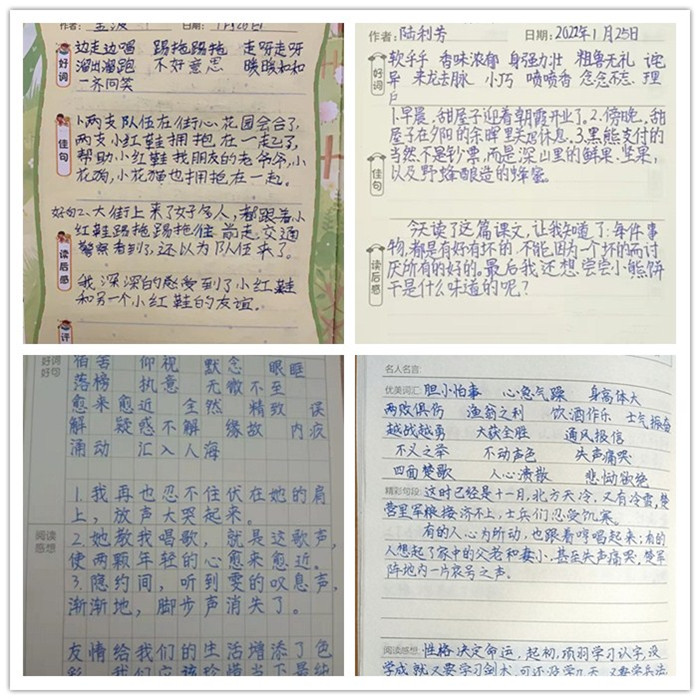 作者：金波 日期：1月28日
好词
边走边唱 踢拖踢拖 走呀走呀
溜出溜跑 不好意思 暖暖和和
一齐问笑
佳句
1、两支队伍在街心花园会合了，
两支小红鞋拥抱在一起了，
帮助小红鞋找朋友的老爷爷，小
花狗，小花猫也拥抱在一起。
好句2、大街上来了好多人，都跟着小
红鞋踢拖踢拖往前走，交通
警察看到了，还以为队伍来了。
读后感
我深深的感受到了小红鞋
和另一个小红鞋的友谊。
评
作者：陆利芳 日期：2022年1月25日
好词
软乎乎 香味浓郁 身强力壮 粗鲁无礼 诧
异 来龙去脉 小巧 喷喷香 念念不忘 理
佳句
1.早晨，甜屋子迎着朝霞开业了。2.傍晚，甜
屋子在夕阳的余晖里关门休息。3.黑熊支付的
当然不是钞票，而是深山里的鲜果、坚果，
以及野蜂酿造的蜂蜜。
读后感
今天读了这篇课文，让我知道了：每件事
物，都是有好有坏的，不能因为一个坏的而讨
厌所有的好的。最后我还想尝尝小熊饼
干是什么味道的呢？
好词
好句
仰视 默念 眼眶
落榜 执意 无微不至
愈来愈近 全然 精致 误
解 疑惑不解 缘故 内疚
涌动 汇入人海
1.我再也忍不住伏在她的肩
上，放声大哭起来。
阅读
感想
2.她教我唱歌，就是这歌声，
使两颗年轻的心愈来愈近。
3.隐约间，听到雯的叹息声，
渐渐地，脚步声消失了。
友情给我们的生活增添了色
彩，我们应该珍惜
名人名言：
优美词汇：胆小怕事 心急气躁 身高体大
两败俱伤 渔翁之利 饮酒作乐 士气振奋
越战越勇 大获全胜 通风报信
不义之举 不动声色 失声痛哭
四面楚歌 人心溃散 悲恸欲绝
精彩句段：这时已经是十一月，北方天冷，又有冷雾，楚
营里军粮接济不上，士兵们忍受饥寒。
有的人心为所动，也跟着哼唱起来；有的
人想起了家中的父老和妻小，甚至失声痛哭，楚军
阵地内一片哀号之声。
阅读感想：性格决定命运，起初，项羽学习认字，没
学成就又要学习剑术，可还没学几天，又要学兵法